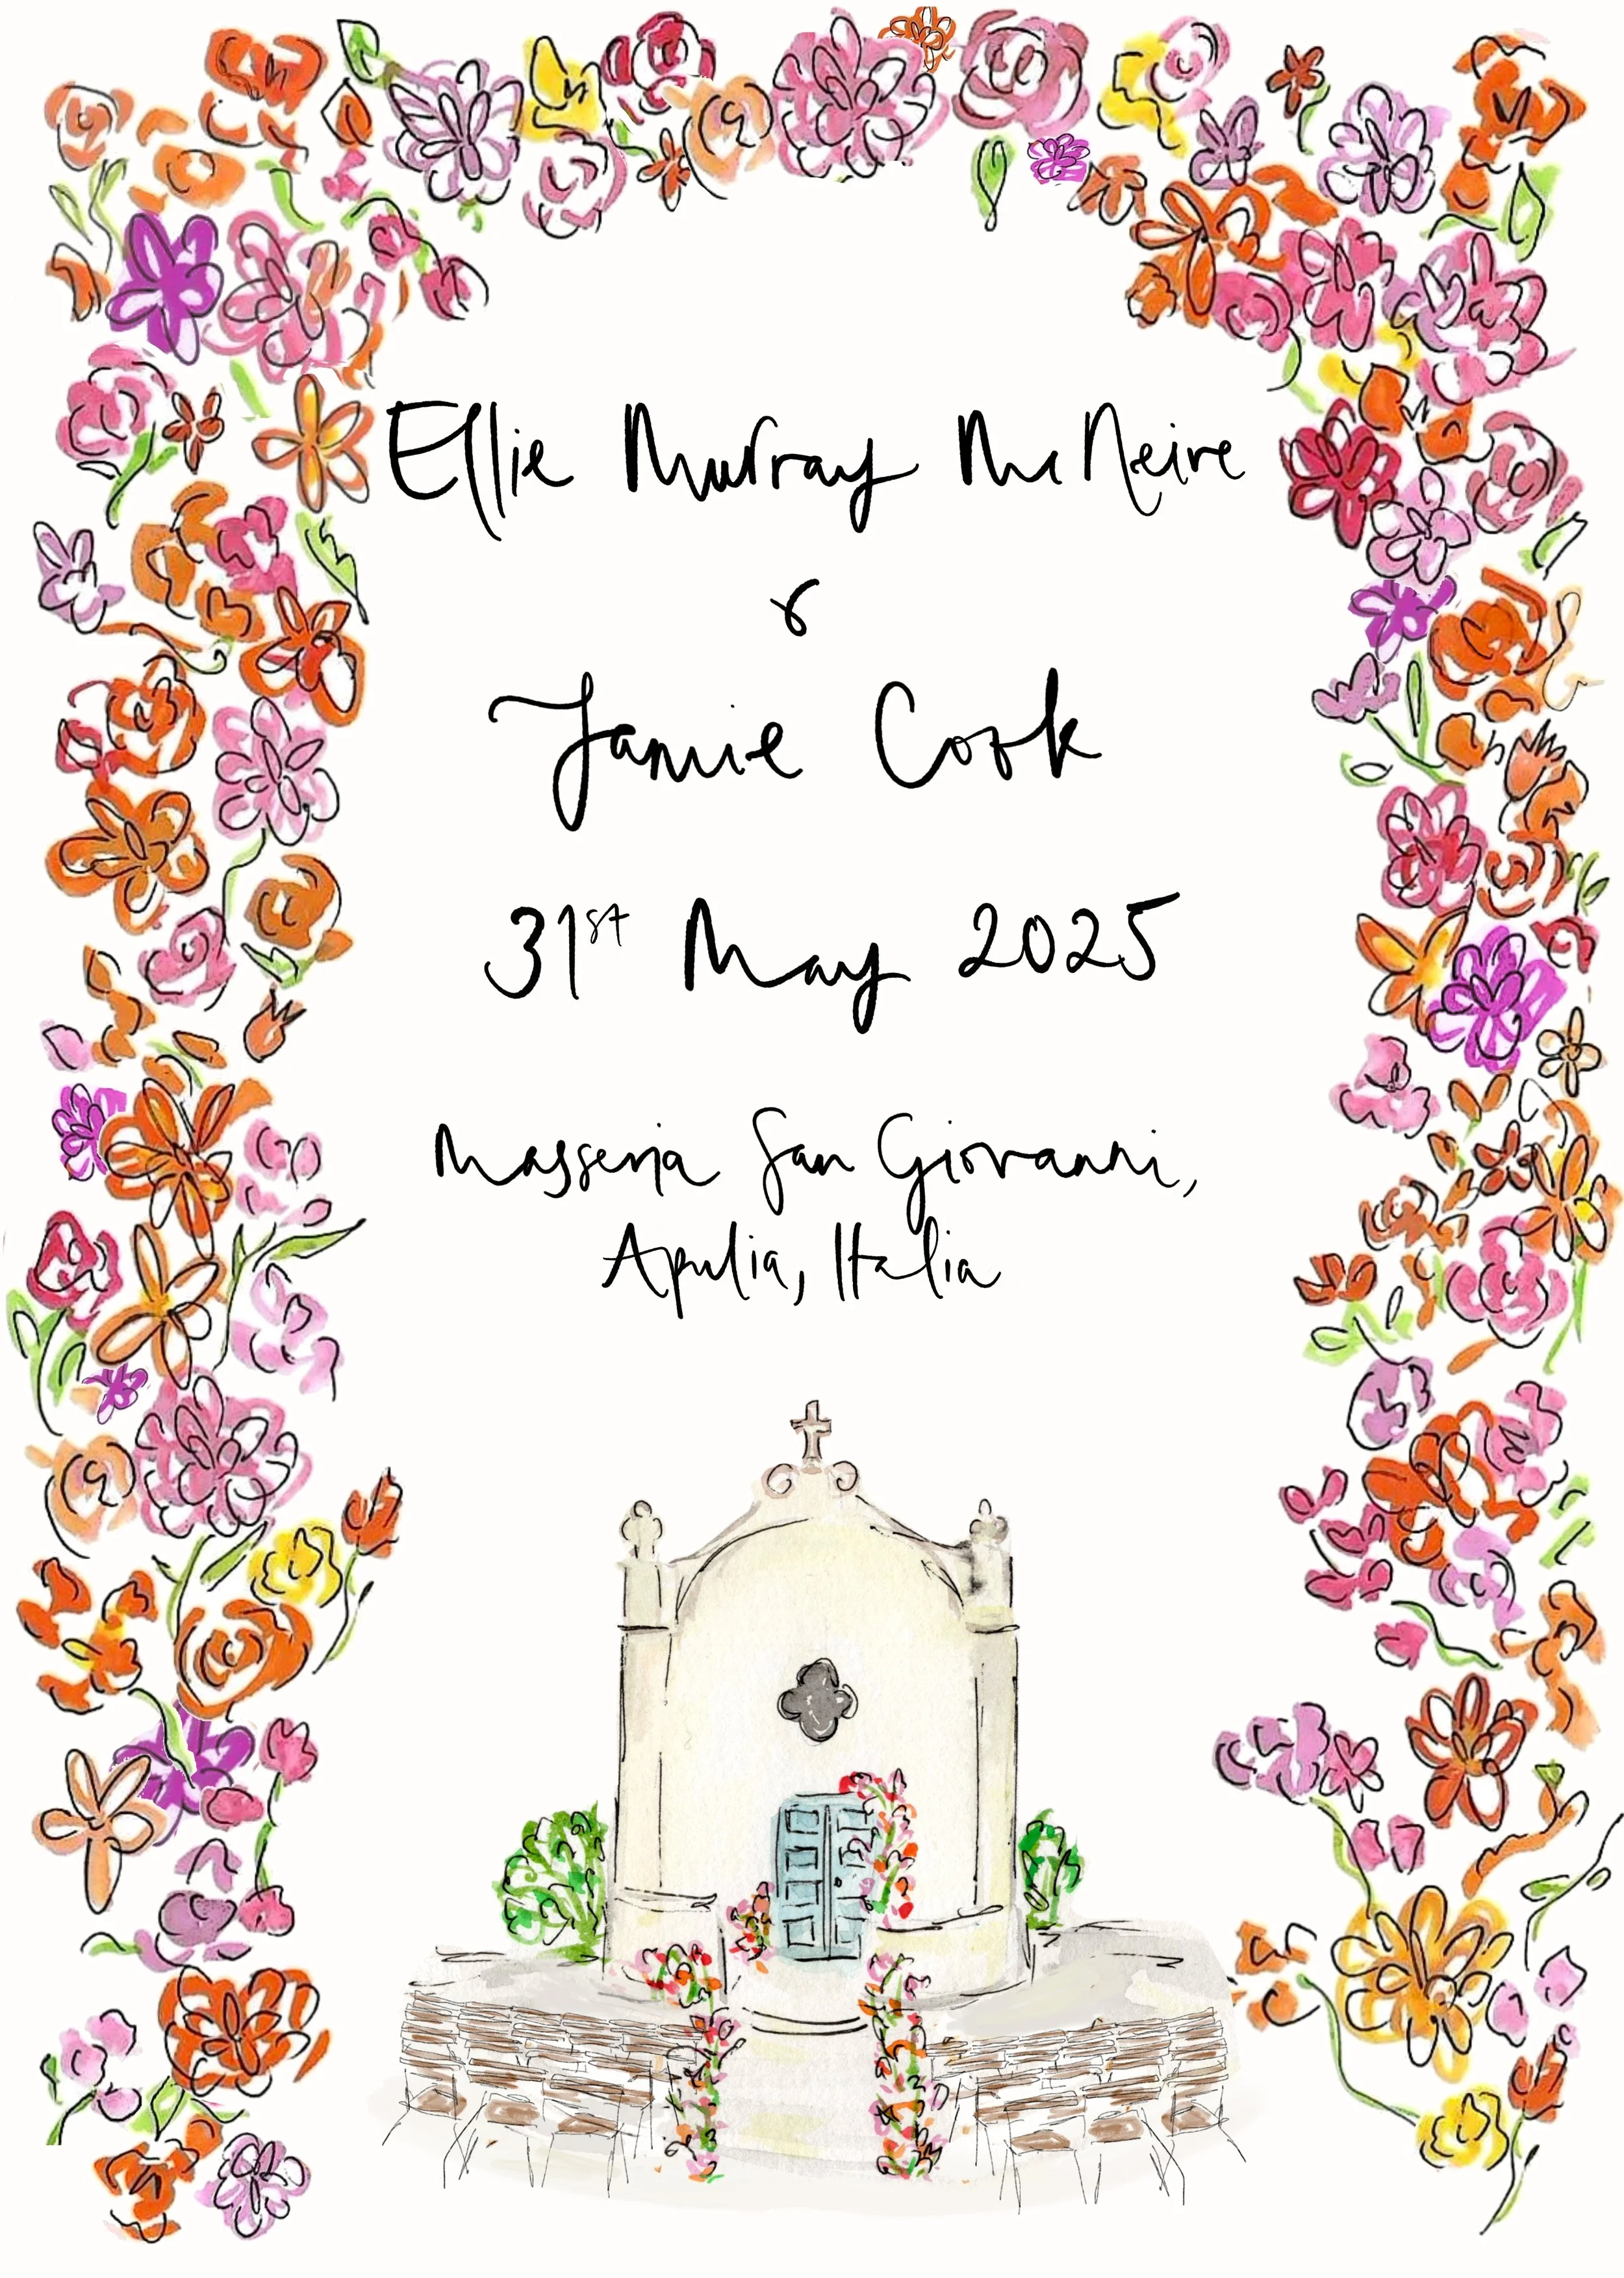 Ellie Murray McNeire
&
Jamie Cook
31st May 2025
Masseria San Giovanni,
Apulia, Italia